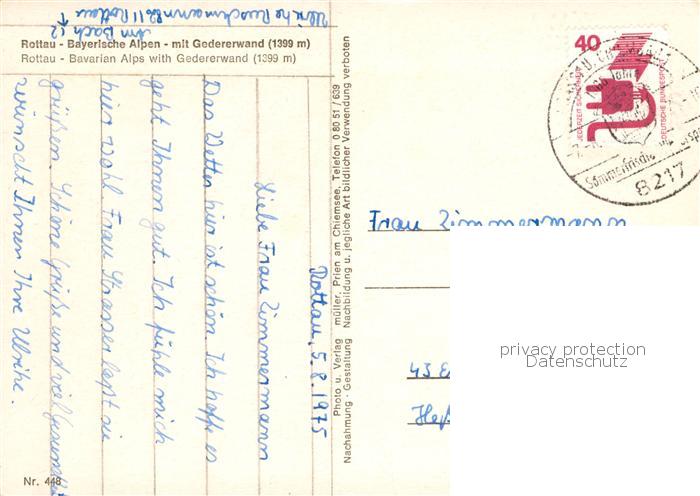 Rottau - Bayerische Alpen - mit Gedererwand (1399 m)
Rottau - Bavarian Alps with Gedererwand (1399 m)
Am Bach 12
8211 Rottau
Ulrike
Rottau, 5.8.1975
Liebe Frau Zimmermann
Das Wetter hier ist schön. Ich hoffe es
geht Ihnen gut. Ich fühle mich
hier wohl Frau Strasser läßt sie
grüßen. Schöne Grüße und viel
wünscht Ihnen Ihre Ulrike.
Nr. 448
Photo u. Verlag müller, Prien am Chiemsee, Telefon 0 80 51 / 639
Nachahmung · Gestaltung Nachbildung u. jegliche Art bildlicher Verwendung verboten
40
JEDERZEIT SICHERHEIT
DEUTSCHE BUNDESPOST
Sommerfrische
8217
Frau Zimmermann
43 E
privacy protection
Datenschutz